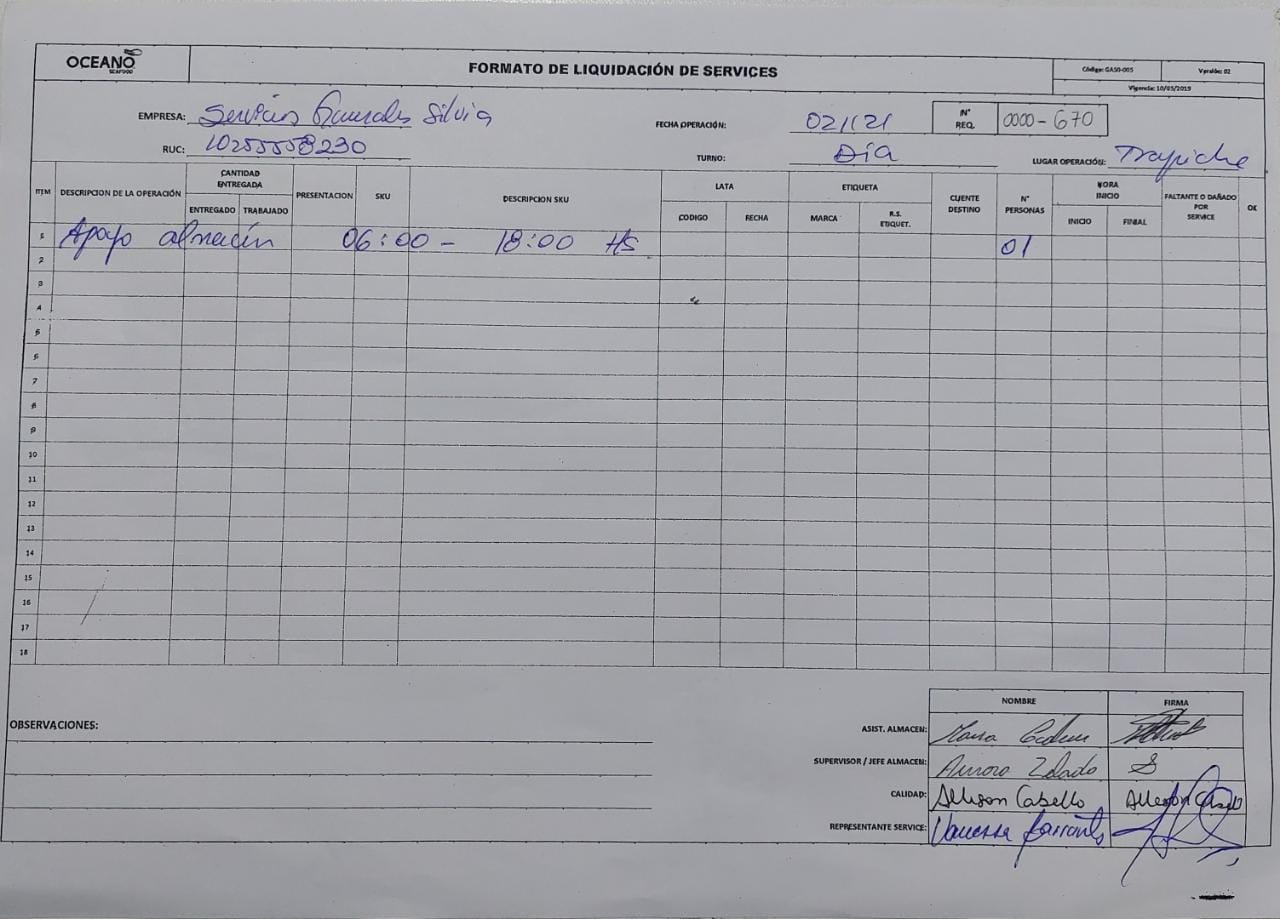 OCEANO
SEAFOOD
FORMATO DE LIQUIDACIÓN DE SERVICES
Código: GA50-005
Versión: 02
Vigencia: 10/05/2019
EMPRESA: Servicios Generales Silvia
FECHA OPERACIÓN:
N° REQ. 0000-670
RUC: 10255558230
TURNO: Día
LUGAR OPERACIÓN: Trapiche
ITEM
DESCRIPCION DE LA OPERACIÓN
CANTIDAD ENTREGADA
ENTREGADO
TRABAJADO
PRESENTACION
SKU
DESCRIPCION SKU
LATA
CODIGO
FECHA
ETIQUETA
MARCA
R.S. ETIQUET.
CLIENTE DESTINO
N° PERSONAS
HORA INICIO
INICIO
FINIAL
FALTANTE O DAÑADO POR SERVICE
OK
1 Apoyo almacén 06:00 - 18:00 HS 01
2
3
4
5
6
7
8
9
10
11
12
13
14
15
16
17
18
NOMBRE
FIRMA
OBSERVACIONES:
ASIST. ALMACEN:
SUPERVISOR / JEFE ALMACEN: Aurora
CALIDAD: Allison Cabello
REPRESENTANTE SERVICE: Vanessa